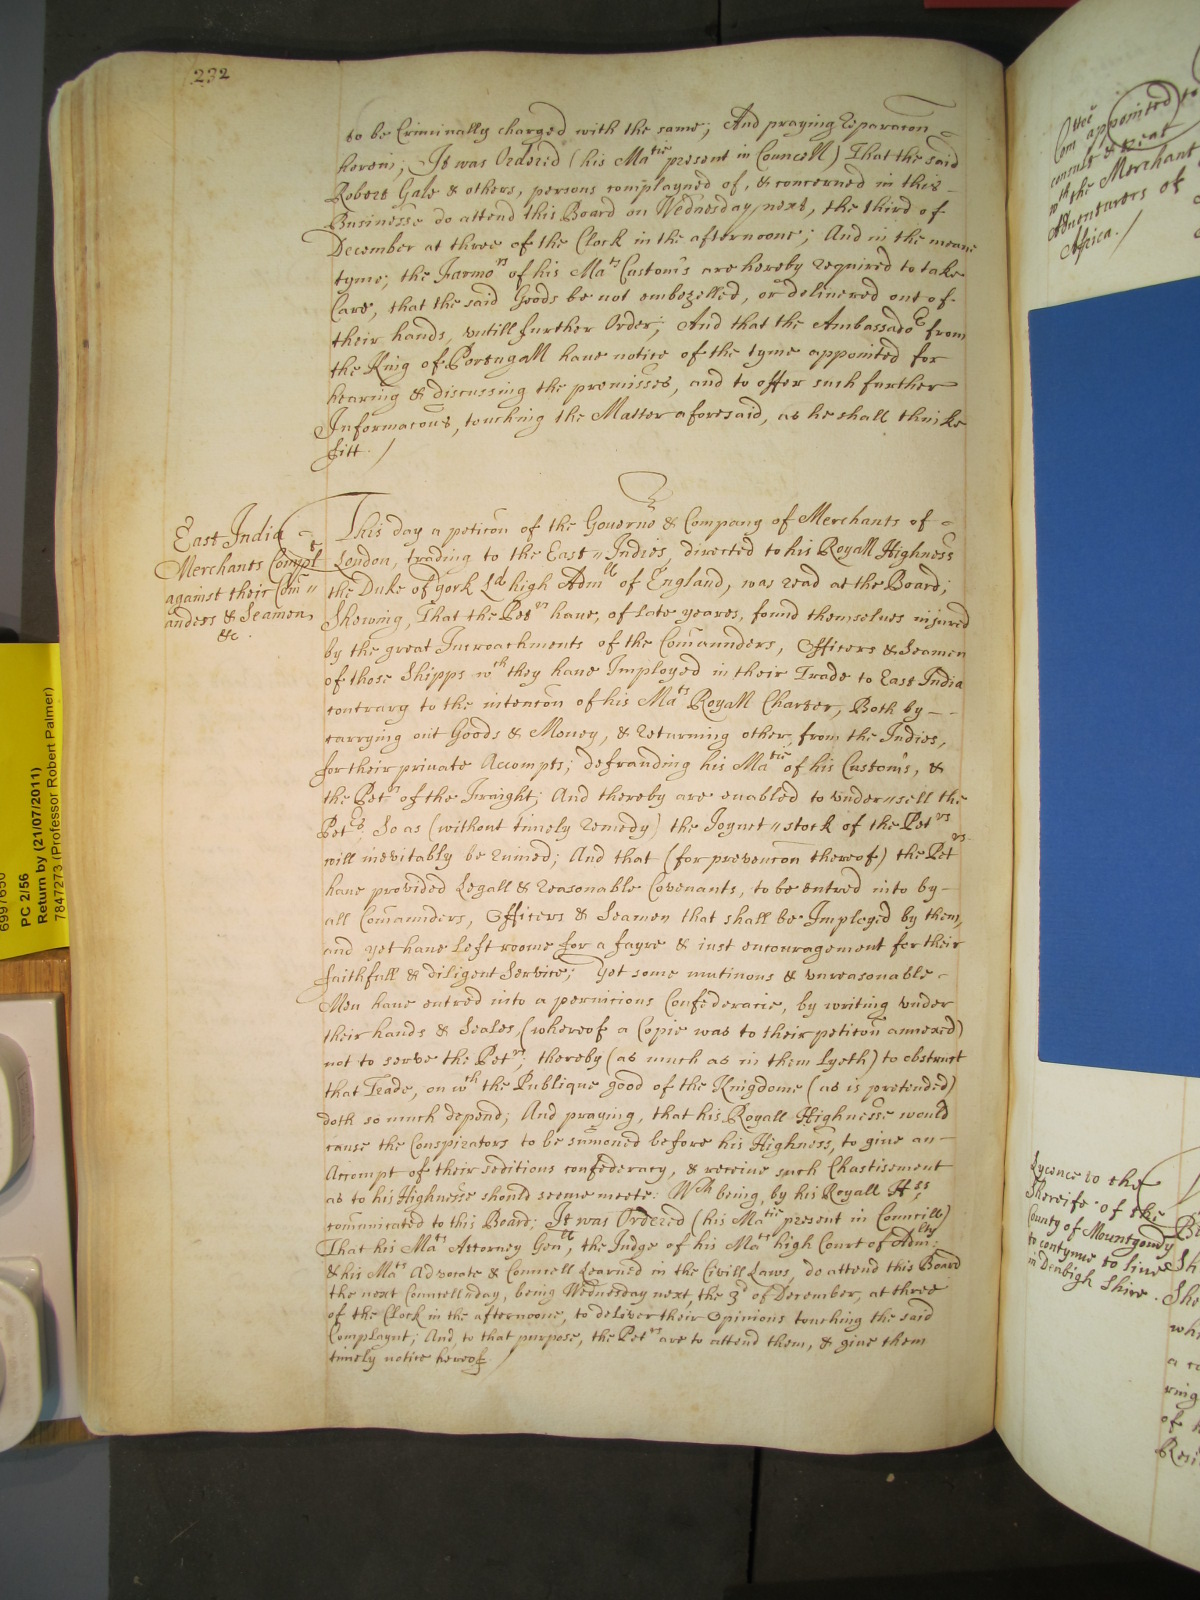 232
to be Criminally charged with the same; And praying Reparacon
herein; It was Ordered (his Matie present in Councell) That the said
Robert Gale & others, persons complayned of, & concerned in this
Businesse do attend this Board on Wednesday next, the third of
December at three of the Clock in the afternoone; And in the meane
tyme; the Farmors of his Mats Customs are hereby required to take
Care, that the said Goods be not embezelled, or delivered out of
their hands, untill further Order; And that the Ambassador from
the King of Portugall have notice of the tyme appointed for
hearing & discussing the premisses, and to offer such further
Informacons, touching the Matter aforesaid, as he shall thinke
fitt. /
East India
Merchants Complt
against their Com〃
anders & Seamen,
&c.
This day a peticon of the Governor & Company of Merchants of
London, trading to the East〃Indies, directed to his Royall Highness
the Duke of york Ld high Admll of England, was read at the Board;
Shewing, That the Petrs have, of late yeares, found themselves injured
by the great Incroachments of the Comanders, Officers & Seamen
of those Shipps wch they have Imployed in their Trade to East India
contrary to the intencon of his Mats Royall Charter, Both by
carrying out Goods & Money, & returning other, from the Indies,
for their private Accompts; defrauding his Matie of his Customs, &
the Petrs of the Fraight; And thereby are enabled to under〃sell the
Petrs. So as (without timely remedy) the Joynt〃stock of the Petrs
will inevitably be ruined; And that (for prevencon thereof) the Petrs
have provided Legall & reasonable Covenants, to be entred into by
all Comanders, Officers & Seamen that shall be Imployed by them,
and yet have left roome for a fayre & iust encouragement for their
faithfull & diligent Service; Yet some mutinous & unreasonable
Men have entred into a pernicious Confederacie, by writing under
their hands & Seales, (whereof a Copie was to their peticon annexed)
not to serve the Petrs; thereby (as much as in them lyeth) to obstruct
that Trade, on wch the Publique good of the Kingdome (as is pretended)
doth so much depend; And praying, that his Royall Highnesse would
cause the Conspirators to be sumoned before his Highness, to give an
Accompt of their seditious confederacy, & receive such Chastisement
as to his Highnesse should seeme meete: Wch being, by his Royall Hss
comunicated to this Board; It was Ordered (his Matie present in Councill)
That his Mats Attorney Genll, the Judge of his Mats high Court of Admlty;
& his Mats Advocate & Councell Learned in the Civill Laws, do attend this Board
the next Councell〃day, being Wednesday next, the 3d of December, at three
of the Clock in the afternoone, to deliver their Opinions touching the said
Complaynt; And to that purpose, the Petrs are to attend them, & give them
timely notice hereof /
PC 2/56
Return by (21/07/2011)
7847273 (Professor Robert Palmer)
Com appointed to
consult & treat
wth the Merchant
Adventurers of
Africa. /
Lycence to the
Shereife of the
County of Mountgomy
to contynue to live
in Denbigh Shire.